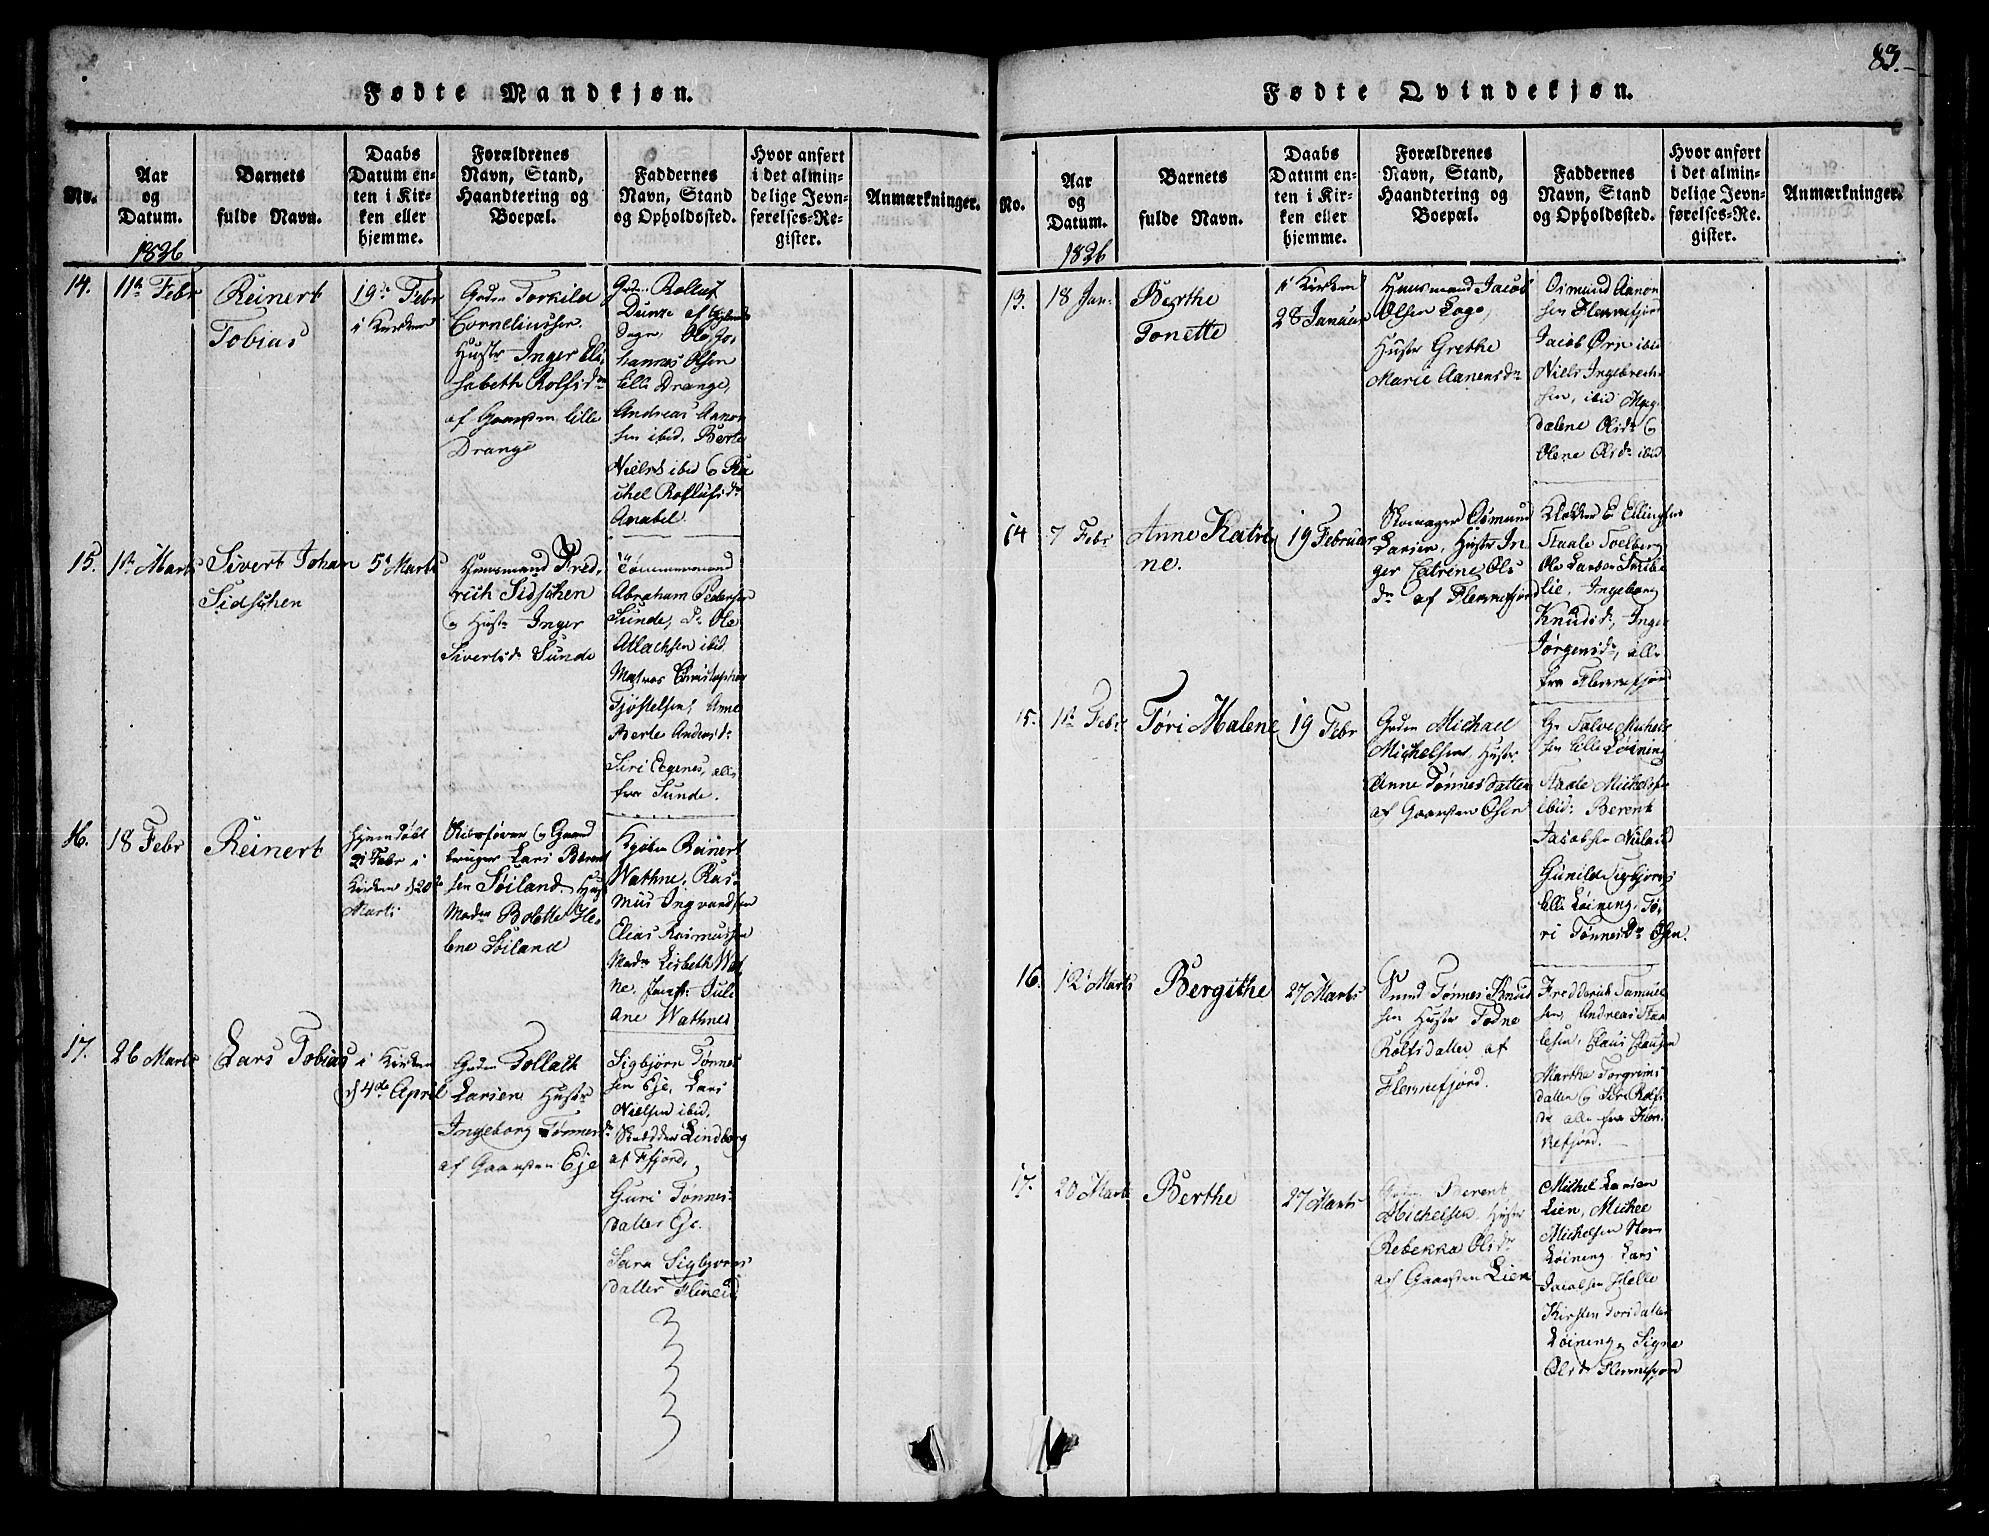 83.
Fødte Mandkjøn.
No.
Aar
og
Datum.
1826
Barnets
fulde Navn.
Daabs
Datum en-
ten i Kir-
ken eller
hjemme.
Forældrenes
Navn, Stand,
Haandtering og
Boepæl.
Faddernes
Navn, Stand
og Opholdssted.
Hvor anført
i det almin-
delige Jevn-
førelses-Re-
gister.
Anmærkninger.
14.
11te Febr
Reinert
Tobias
19de Febr
i Kirken
Torkild
Corneliussen
Hustr Inger Eli-
sabeth Rolfsdr
af Gaarden Lille
Drange
Rolluf
Dunze af
Ole Jo-
hannes Olsen
Lille Drange,
Andreas Aanon
sen ibid, Berte
Niels ibid & Ra
chel Rollufsdr
Anabel.
15.
1te Marts
Sivert Johan
Sidschen
5te Marts
Huusmand Fred-
rich Sidschen
& Hustr Inger
Sivertsdr Sunde
Tömmermand
Abraham Pedersen
Sunde, Do Ole
Atlachsen ibid,
Matros Christopher
Tjöstelsen, Ane
Berte Andersdr
Siri Eegenes, alle
fra Sunde.
16.
18 Febr
Reinert
Hjemdöbt
21 Febr i
Kirken d 20de
Marts
Gaard
bruger Lars Berent
sen Söiland. Hust
Madm Bolette He-
lene Söiland
Reinert
Wathne, Ras-
mus Ingvardsen
Elias Rasmussen
Madm Lisbeth Wat
ne, Jomf: Juli
ane Wathne
17.
26 Marts
Lars Tobias
i Kirken
d 4de April
Tollach
Larsen Hustr
Ingeborg Tønnesdr
af Gaarden Eje
Sigbjørn Tønnes
sen Eje, Lars
Nielsen ibid,
Skrædder Lindberg
af Ffjord,
Guri Tønnes-
datter Eje.
Sara Sigbjørns
datter
Fødte Qvindekjøn.
No.
Aar
og
Datum.
1826
Barnets
fulde Navn.
Daabs
Datum en-
ten i Kir-
ken eller
hjemme.
Forældrenes
Navn, Stand,
Haandtering og
Boepæl.
Faddernes
Navn, Stand
og Opholdssted.
Hvor anført
i det almin-
delige Jevn-
førelses-Re-
gister.
Anmærkninger.
13.
18 Jan.
Berthe
Tonette
i Kirken
28 Januar
Huusmand Jacob
Olsen Loge,
Hustr Grethe
Marie Aanensdr
Osmund Aanon
sen Flekkefjord
Jacob Ørn ibid
Niels Ingebrecht-
sen, ibid Mag-
dalene Olsdr &
Olene Olsdr ibid
14
7 Febr
Anne Katri
ne.
19 Februar
Skomager Osmund
Larsen, Hustr In
ger Catrine Ols
dr af Flekkefjord
Klokker E Ellingsen
Staale Soelberg
Ole Larsen
lie, Ingeborg
Knudsdr, Inger
Jørgensdr, alle
fra Flekkefjord
15.
11te Febr
Tøri Malene
19 Febr
Michael
Michelsen, Hustr
Anne Tønnesdatter
af Gaarden Osen
Salve Michels
sen Lille Løining
Staale Michelsen
ibid: Berent
Jacobsen Niland
Gunild Sigbjørns
Lille Løining, Tø-
ri Tønnesdr Osen.
16.
12 Marts
Bergithe
27 Marts
Smed Tønnes Knud
sen Hustr Todne
Rolfsdatter af
Flekkefjord.
Fredderich Samuel
sen, Andreas Staa
lesen, Claus Clausen
Marthe Torgrims
datter & Siri Rolfs
dr alle fra Flek-
kefjord.
17.
20 Marts
Berthe
27 Marts
Berent
Michelsen, Hustr
Rebekka Olsdr
af Gaarden Lien
Mikkel Larsen
Lien, Michel
Michelsen Store
Løining, Lars
Jacobsen Helle
Kirsten Torsdatter
Løining, Signe
Olsdr Flekkefjord